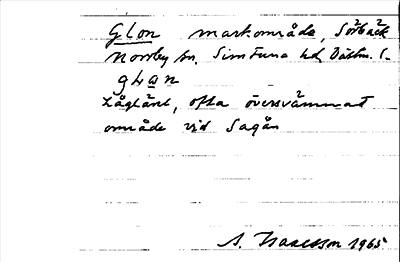 Glon markområde, Sörbäck
Norrby sn. Simtuna hd, Västm. l.
glan
Låglänt, ofta översvämmat
område vid Sagån
A. Isaacsson 1965